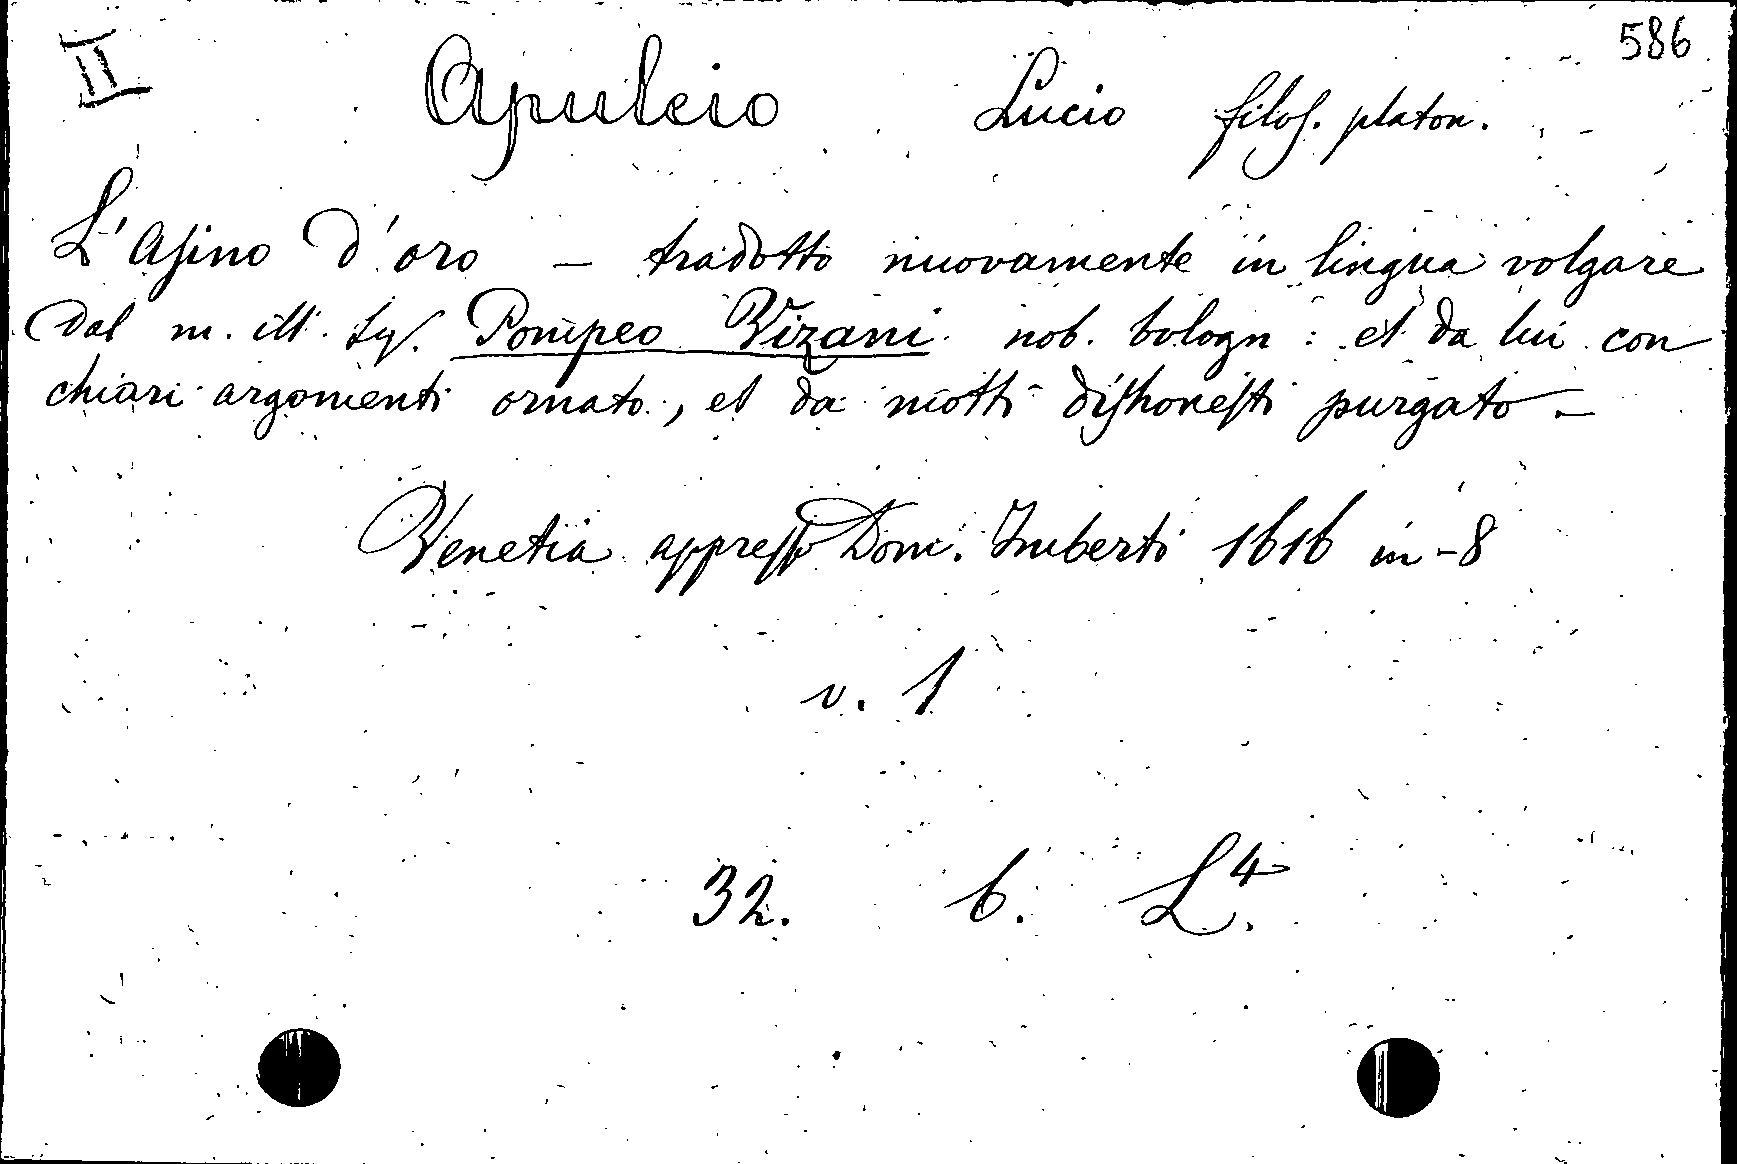 II 586
Apuleio Lucio filos. platon.
L'Asino d'oro — tradotto nuovamente in lingua volgare
dal m. ill. Sig. Pompeo Vizani nob. bologn: et da lui con
chiari argomenti ornato, et da motti dishonesti purgato —
Venetia appresso Dom. Imberti 1616 in-8
v. 1
32. b. L⁴.